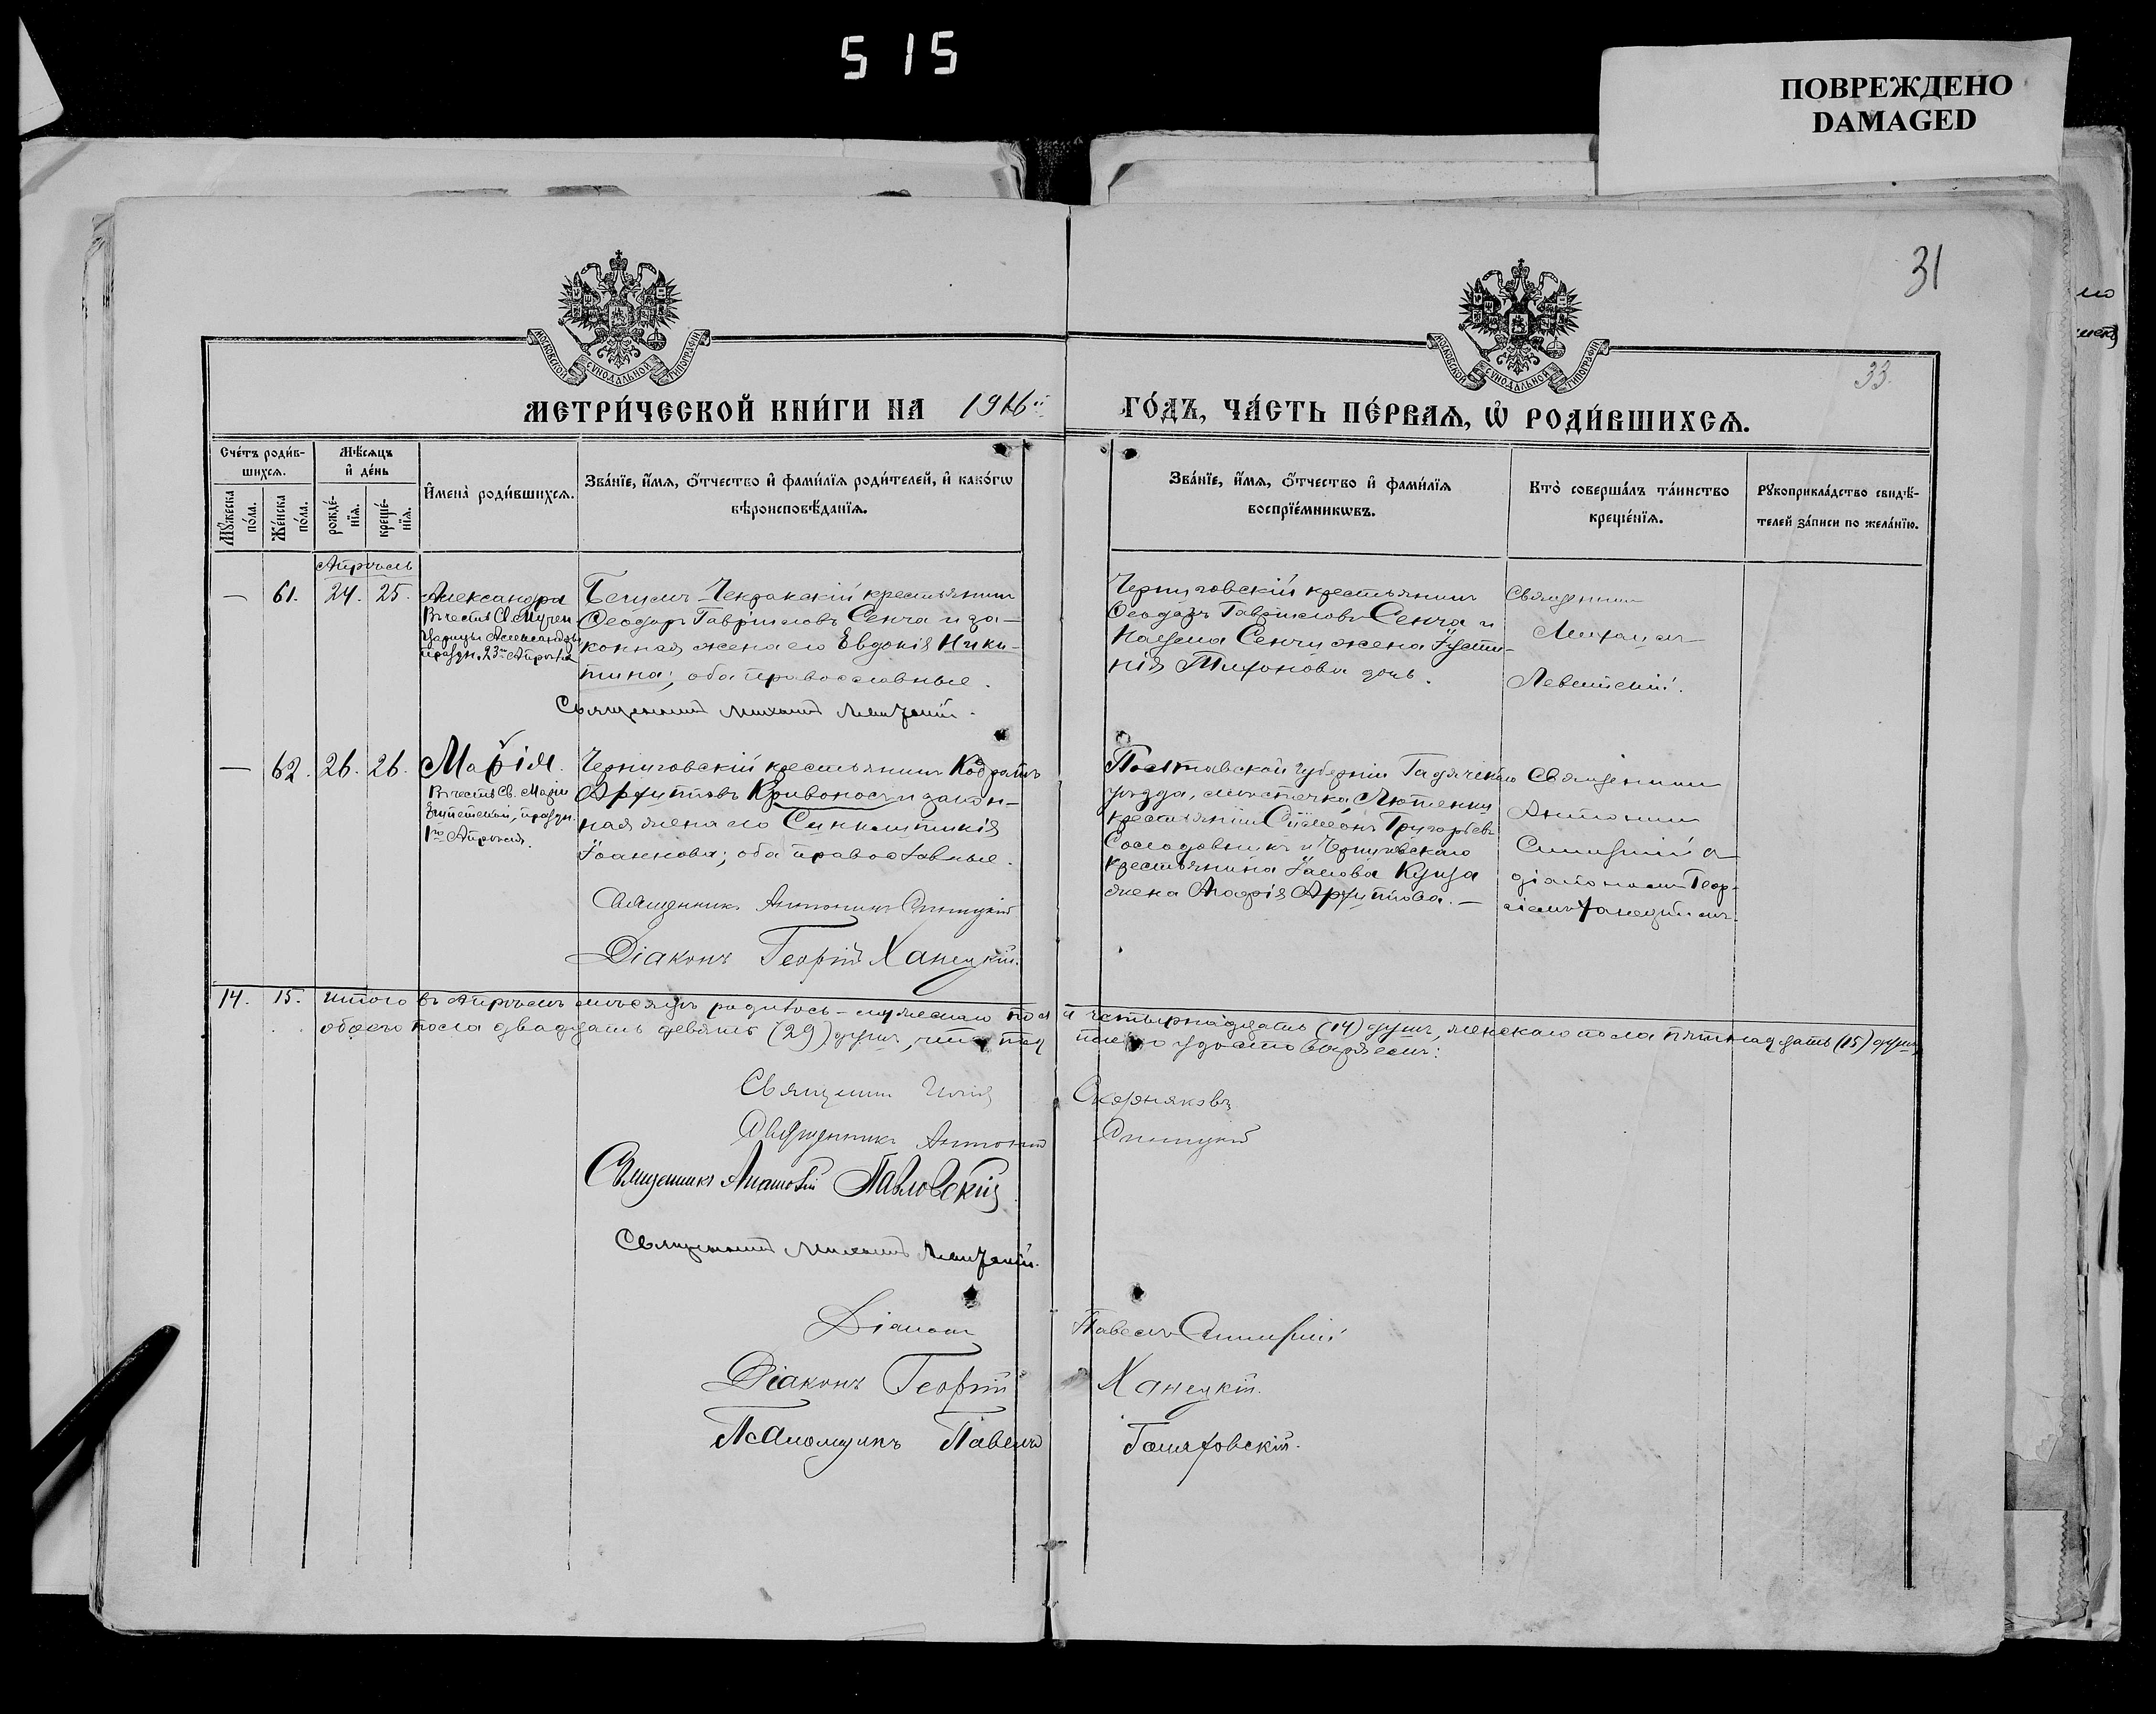 515
ПОВРЕЖДЕНО
DAMAGED
31
33.
МОСКОВСКОЙ СѴНОДАЛЬНОЙ ТИПОГРАФІИ
МОСКОВСКОЙ СѴНОДАЛЬНОЙ ТИПОГРАФІИ
МЕТРИ́ЧЕСКОЙ КНИ́ГИ НА 1916й
ГО́ДЪ, ЧА́СТЬ ПЕ́РВАѦ, Ѡ҆ РОДИ́ВШИХСѦ.
Сче́тъ роди́в-
шихсѧ.
Мꙋ́жеска по́ла.
Же́нска по́ла.
Мѣ́сѧцъ
и҆ де́нь
рожде́-
нїѧ.
креще́-
нїѧ.
И҆мена̀ роди́вшихсѧ.
Зва́нїе, и҆́мѧ, ѻ҆́тчество и҆ фами́лїѧ роди́телей, и҆ како́гѡ
вѣроисповѣ́данїѧ.
Зва́нїе, и҆́мѧ, ѻ҆́тчество и҆ фами́лїѧ
воспрїе́мникѡвъ.
Кто̀ соверша́лъ та́инство
креще́нїѧ.
Рꙋкоприкла́дство свидѣ́-
телей за́писи по жела́нїю.
Апрѣль
— 61. 24. 25.
Александра
В честь Св. Мучен.
Царицы Александры
праздн. 23го Апрѣля
Бегимъ Чекракскій крестьянинъ
Ѳеодоръ Гавріиловъ Сенча и за-
конная жена его Евдокія Ники-
тина; оба православные.
Священникъ Михаилъ Левитскій.
Черниговскій крестьянинъ
Ѳеодоръ Гавріиловъ Сенча и
Сенчи жена Іусти-
нія Тихонова дочь.
Священникъ
Михаилъ
Левитскій.
— 62. 26. 26.
Марія.
В честь Св. Маріи
Египетской, праздн.
1го Апрѣля.
Черниговскій крестьянинъ Кодратъ
Архиповъ Кривоносъ и закон-
ная жена его Синклитикія
Іоаннова; оба православные.
Священникъ Антоній Синицкій
Діаконъ Георгій Ханецкій.
Полтавской губерніи Гадячскаго
уѣзда, мѣстечка Лютенки
крестьянинъ Симеонъ Григорьевъ
и Черниговскаго
крестьянина Іакова Куцза
жена Агафія Архипова. —
Священникъ
Антоній
Синицкій съ
діакономъ Геор-
гіемъ Ханецкимъ.
14. 15. Итого въ Апрѣлѣ мѣсяцѣ родилось — мужескаго пола четырнадцать (14) душъ, женскаго пола пятнадцать (15) душъ,
обоего пола двадцать девять (29) душъ, что удостовѣряемъ:
Священникъ Скорняковъ
Священникъ Антоній Синицкій
Священникъ Анатолій Павловскій
Священникъ Михаилъ Левитскій.
Діаконъ Павелъ Синицкій
Діаконъ Георгій Ханецкій.
Псаломщикъ Павелъ Гошховскій.